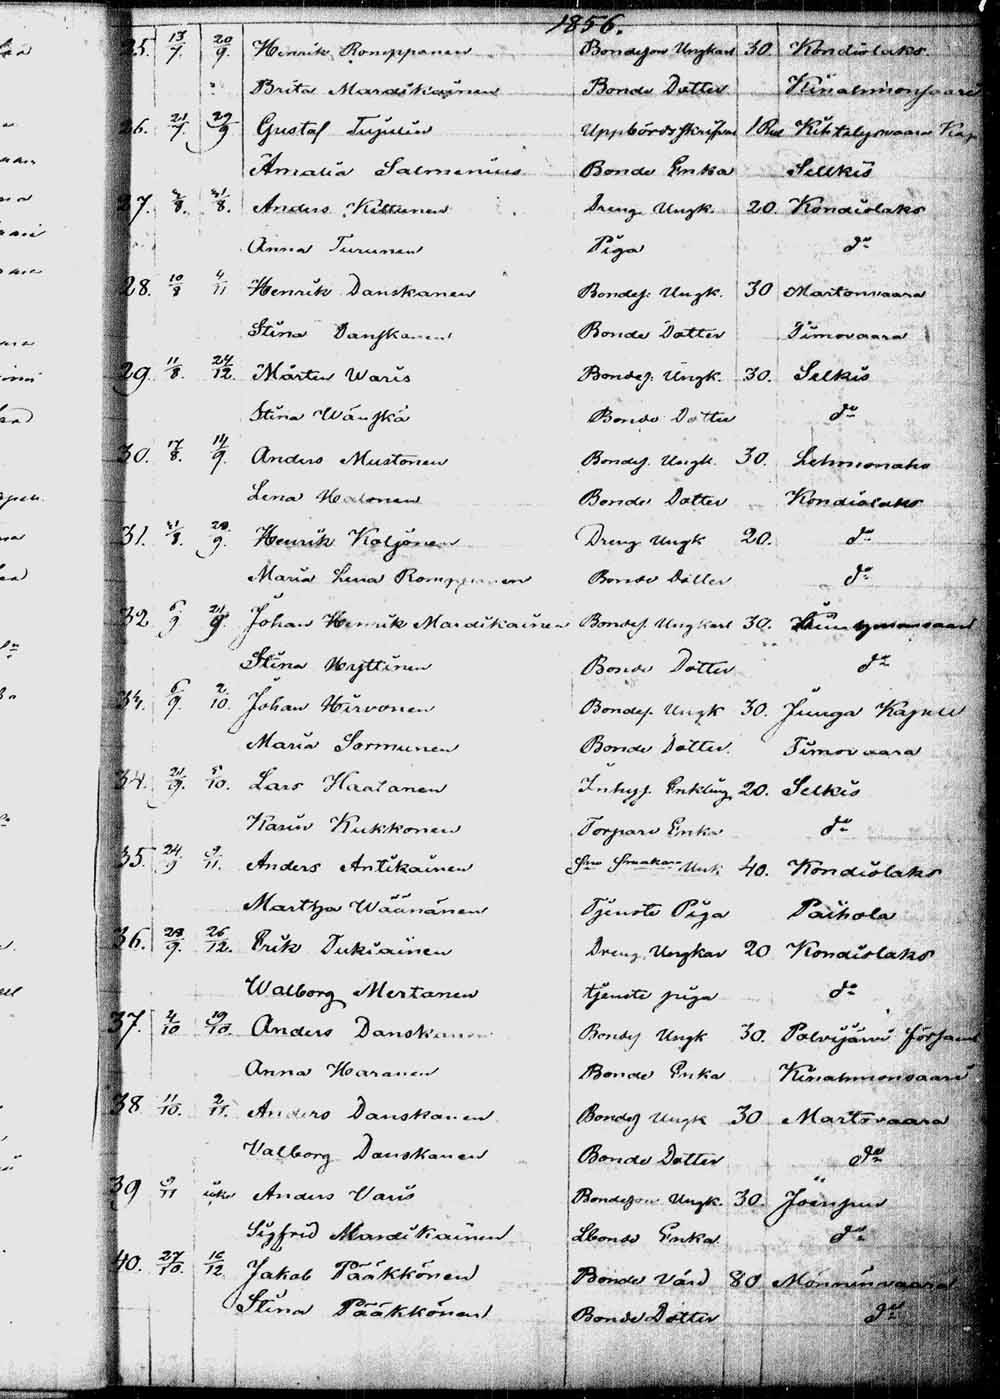 1856.
25. 13/7. 20/9. Henrik Romppanen Bondeson Ungkarl 30 Kondiolaks.
Brita Mardikainen Bonde Dotter Kinahmonsaari
26. 21/7. 27/9 Gustaf Uppbördsskrifvare 1 Rub Kihtelyswaara Kap
Amalia Salmenius Bonde Enka Selkis
27. 3/8. 31/8. Anders Kettunen Dreng Ungk. 20. Kondiolaks
Anna Turunen Piga do
28. 10/8 4/11 Henrik Danskanen Bondes: Ungk. 30 Martonvaara
Stina Danskanen Bonde Dotter Timovaara
29. 11/8. 24/12. Mårten Waris Bondes: Ungk. 30. Selkis
Stina Wänskä Bonde Dotter do
30. 17/8. 14/9. Anders Mustonen Bondes. Ungk. 30. Lehmonaho
Lena Halonen Bonde Dotter Kondiolaks
31. 31/8. 20/9. Henrik Koljonen Dreng Ungk 20. do
Maria Lena Romppanen Bonde Dotter do
32 6/9 21/9 Johan Henrik Mardikainen Bondes. Ungkarl 30.
Stina Hyttinen Bonde Dotter do
34. 6/9. 2/10. Johan Hirvonen Bondes. Ungk 30. Juuga Kapell
Maria Sormunen Bonde Dotter. Timovaara
34. 21/9. 5/10. Lars Haatanen Inhys. Enkling 20. Selkis
Karin Kukkonen Torpare Enka do
35. 24/9 9/11. Anders Antikainen Ungk 40. Kondiolaks
Martha Wäänänen Tjenste Piga Paihola
36. 28/9. 26/12. Erik Tukiainen Dreng Ungkar 20 Kondiolaks
Walborg Mertanen tjenste piga do
37. 4/10 19/10. Anders Danskanen Bondes Ungk 30. Polvijärvi församl
Anna Haranen Bonde Enka Kinahmonsaari
38. 11/10. 2/11. Anders Danskanen Bondes Ungk 30 Martovaara
Valborg Danskanen Bonde Dotter do
39 9/11 Anders Varis Bondeson Ungk. 30. Joensuu
Sigfrid Mardikainen Bonde Enka do
40. 27/10. 16/12 Jakob Pääkkönen Bonde Värd 80 Mönninvaara
Stina Pääkkönen Bonde Dotter do